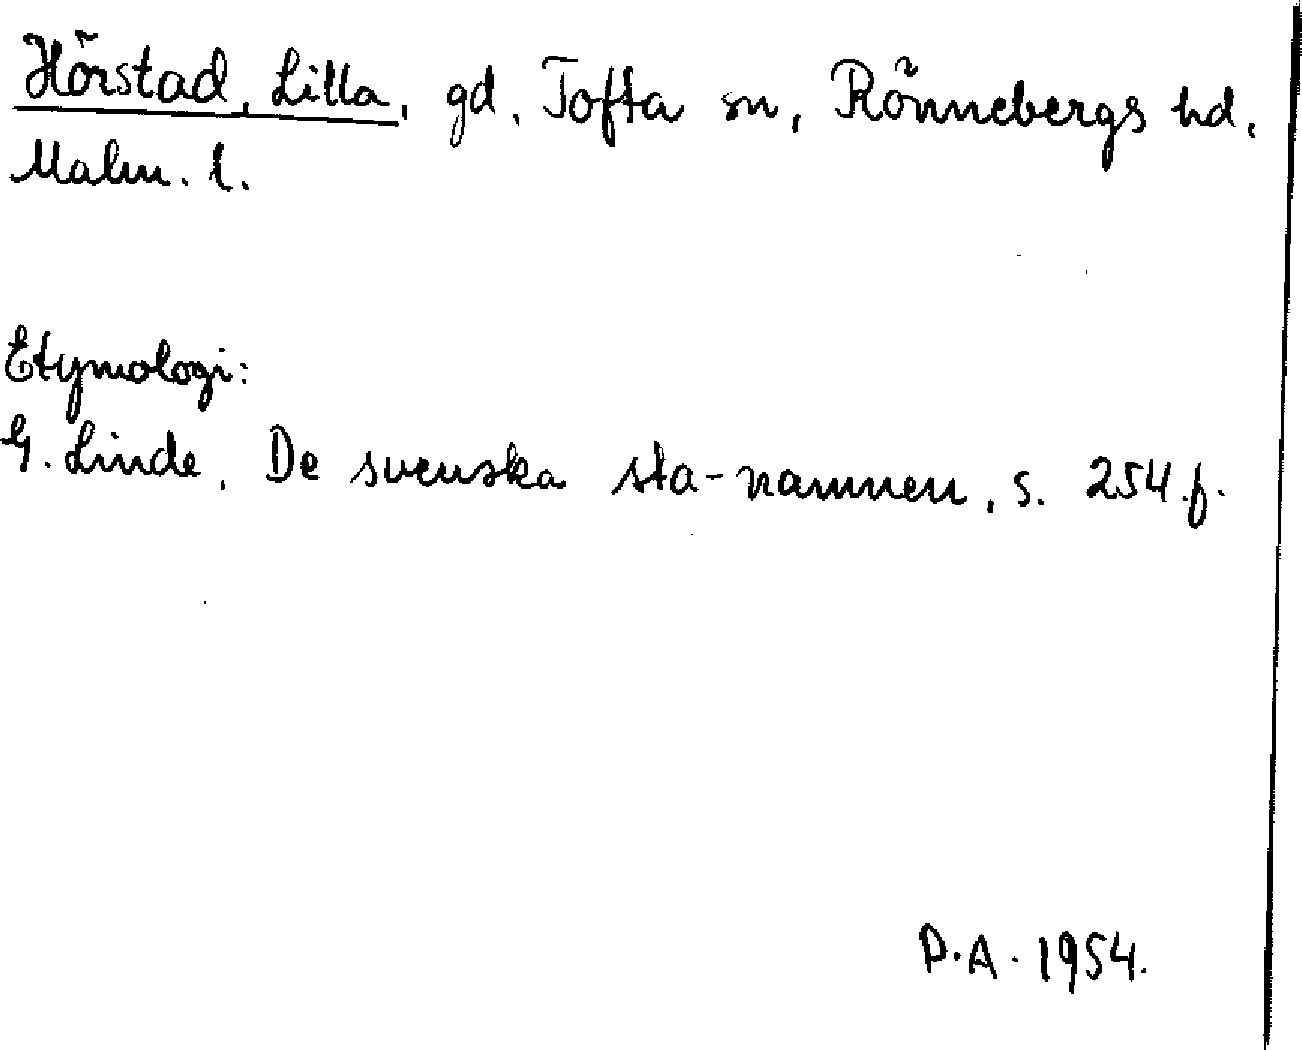 Hörstad, Lilla, gd, Tofta sn, Rönnebergs hd,
Malm. l.
Etymologi:
G. Linde, De svenska sta-namnen, s. 254.f.
D.A. 1954.